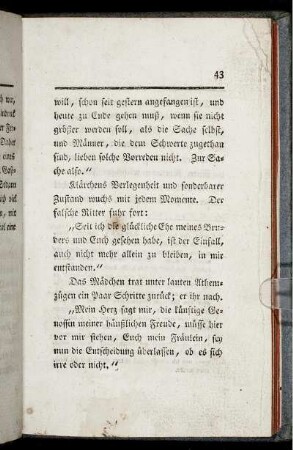 43
will, schon seit gestern angefangen ist, und
heute zu Ende gehen muß, wenn sie nicht
größer werden soll, als die Sache selbst,
und Männer, die dem Schwerte zugethan
sind, lieben solche Vorreden nicht. Zur Sa-
che also."
Klärchens Verlegenheit und sonderbarer
Zustand wuchs mit jedem Momente. Der
falsche Ritter fuhr fort:
„Seit ich die glückliche Ehe meines Bru-
ders und Euch gesehen habe, ist der Einfall,
auch nicht mehr allein zu bleiben, in mir
entstanden."
Das Mädchen trat unter lauten Athem-
zügen ein Paar Schritte zurück; er ihr nach.
„Mein Herz sagt mir, die künftige Ge-
nossin meiner häußlichen Freude, müsse hier
vor mir stehen, Euch mein Fräulein, sey
nun die Entscheidung überlassen, ob es sich
irre oder nicht."